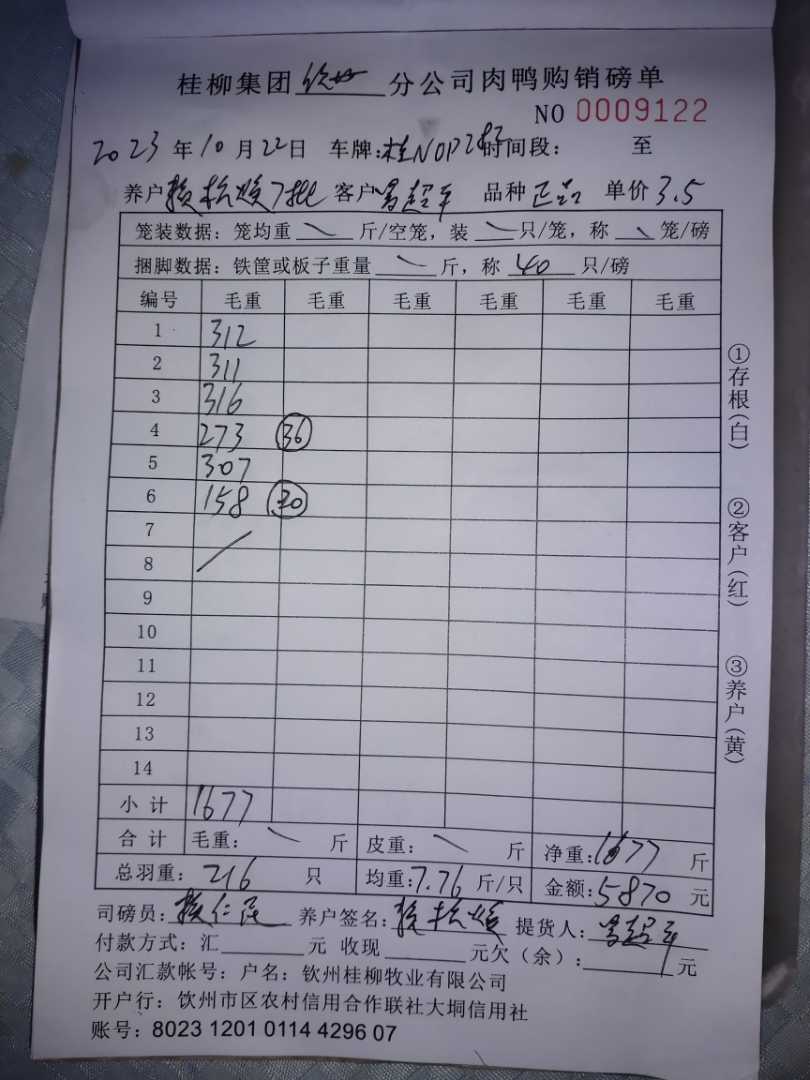 桂柳集团钦州分公司肉鸭购销磅单
NO 0009122
2023年10月22日 车牌:桂NOP283时间段: 至
养户赖松焕7批 客户 超平 品种正品 单价3.5
笼装数据:笼均重 斤/空笼,装 只/笼,称 笼/磅
捆脚数据:铁筐或板子重量 斤,称 40 只/磅
编号 毛重 毛重 毛重 毛重 毛重 毛重
1 312
2 311
3 316
4 273 36
5 307
6 158 20
7
8
9
10
11
12
13
14
小计 1677
合计 毛重: 斤 皮重: 斤 净重:1677 斤
总羽重: 216 只 均重:7.76 斤/只 金额:5870 元
司磅员: 仁 养户签名:赖松焕 提货人: 超平
付款方式:汇 元 收现 元欠(余): 元
公司汇款帐号:户名:钦州桂柳牧业有限公司
开户行:饮州市区农村信用合作联社大垌信用社
账号:8023 1201 0114 4296 07
①存根(白)
②客户(红)
③养户(黄)